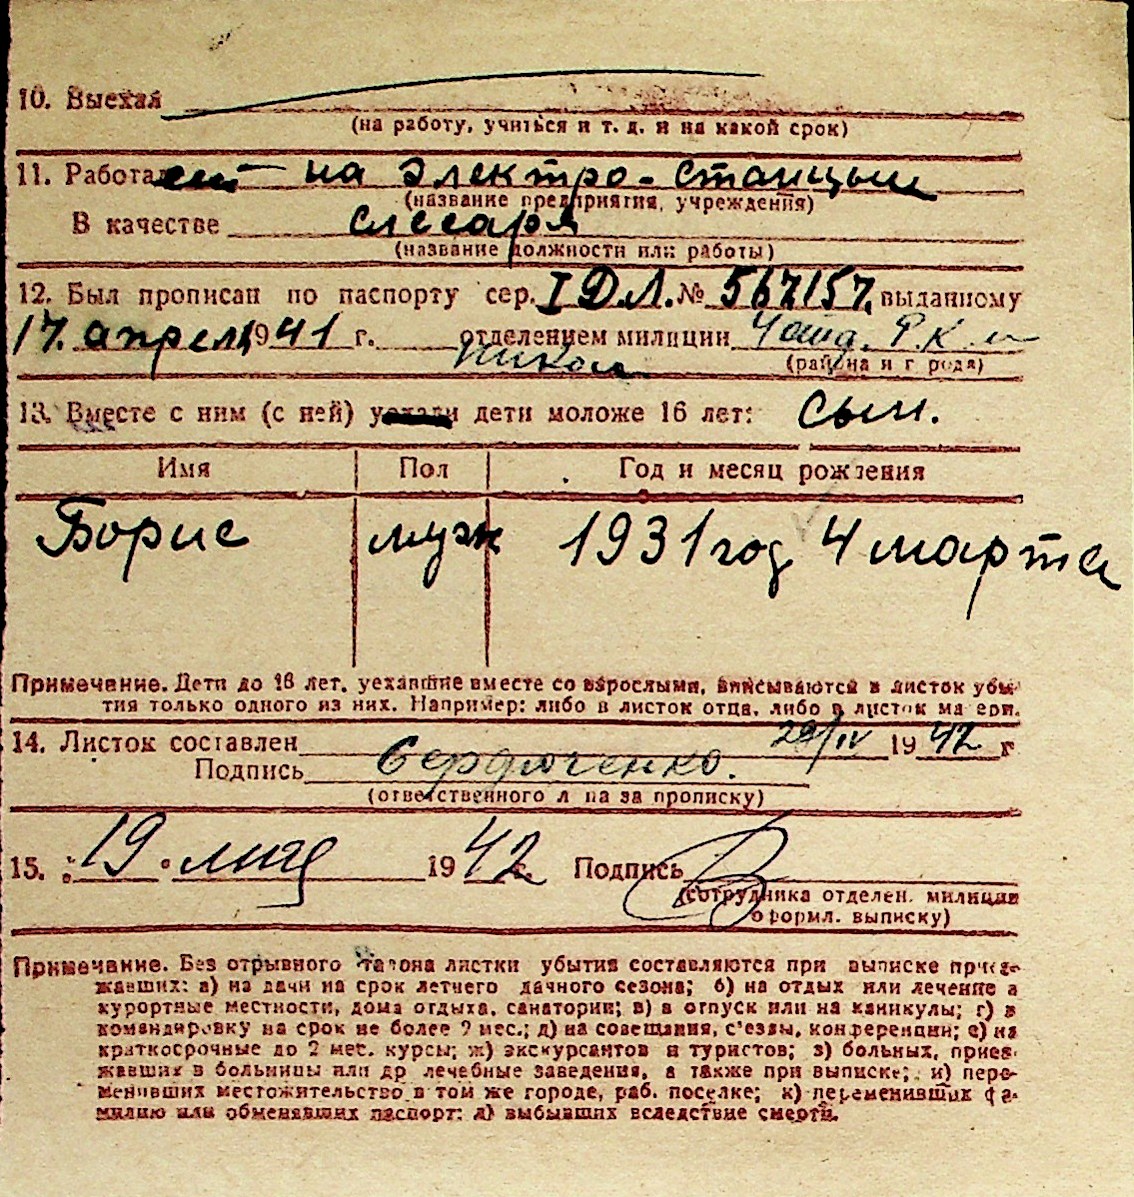 10. Выехал
(на работу, учиться и т. д. и на какой срок)
11. Работает на электро-станцыи
(название предприятия, учреждения)
В качестве слесаря
(название должности или работы)
12. Был прописан по паспорту сер. I ДЛ. № 567157, выданному
17. апреля 1941 г. отделением милиции Р.К.М
(района и города)
13. Вместе с ним (с ней) уехали дети моложе 16 лет: сын.
Имя Пол Год и месяц рождения
Борис муж 1931 год 4 марта
Примечание. Дети до 16 лет, уехавшие вместе со взрослыми, вписываются в листок убы-
тия только одного из них. Например: либо в листок отца, либо в листок матери.
14. Листок составлен 29/IV 1942 г
Подпись Сердюченко.
(ответственного лица за прописку)
15. "19" мая 1942 г. Подпись
(сотрудника отделен. милиции
оформл. выписку)
Примечание. Без отрывного талона листки убытия составляются при выписке приез-
жавших: а) на дачи на срок летнего дачного сезона; б) на отдых или лечение в
курортные местности, дома отдыха, санатории; в) в отпуск или на каникулы; г) в
командировку на срок не более 2 мес.; д) на совещания, с'езды, конференции; е) на
краткосрочные до 2 мес. курсы; ж) экскурсантов и туристов; з) больных, приез-
жавших в больницы или др лечебные заведения, а также при выписке; и) пере-
менивших местожительство в том же городе, раб. поселке; к) переменивших фа-
милию или обменявших паспорт; л) выбывших вследствие смерти.